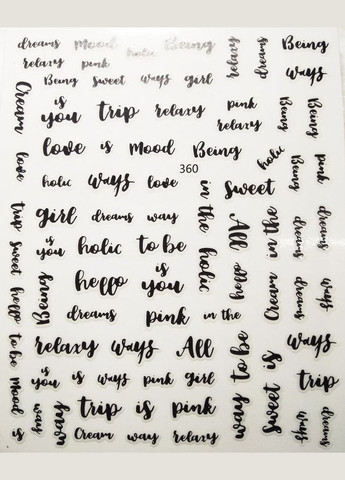 dreams mood holic Being relaxy dreams Being
relaxy pink
Being sweet ways girl ways
Cream is you trip relaxy pink relaxy Being Being
love is mood Being holic
love holic ways love 360 in the sweet Being pink
trip girl dreams way holic All Cream in the dreams dreams
sweet is you holic to be
hello Being hello is you hello dreams ways
dreams pink in the
to be relaxy ways All way to be sweet is ways
mood is you is ways pink girl trip
is way way trip is pink ways dreams
Cream way relaxy